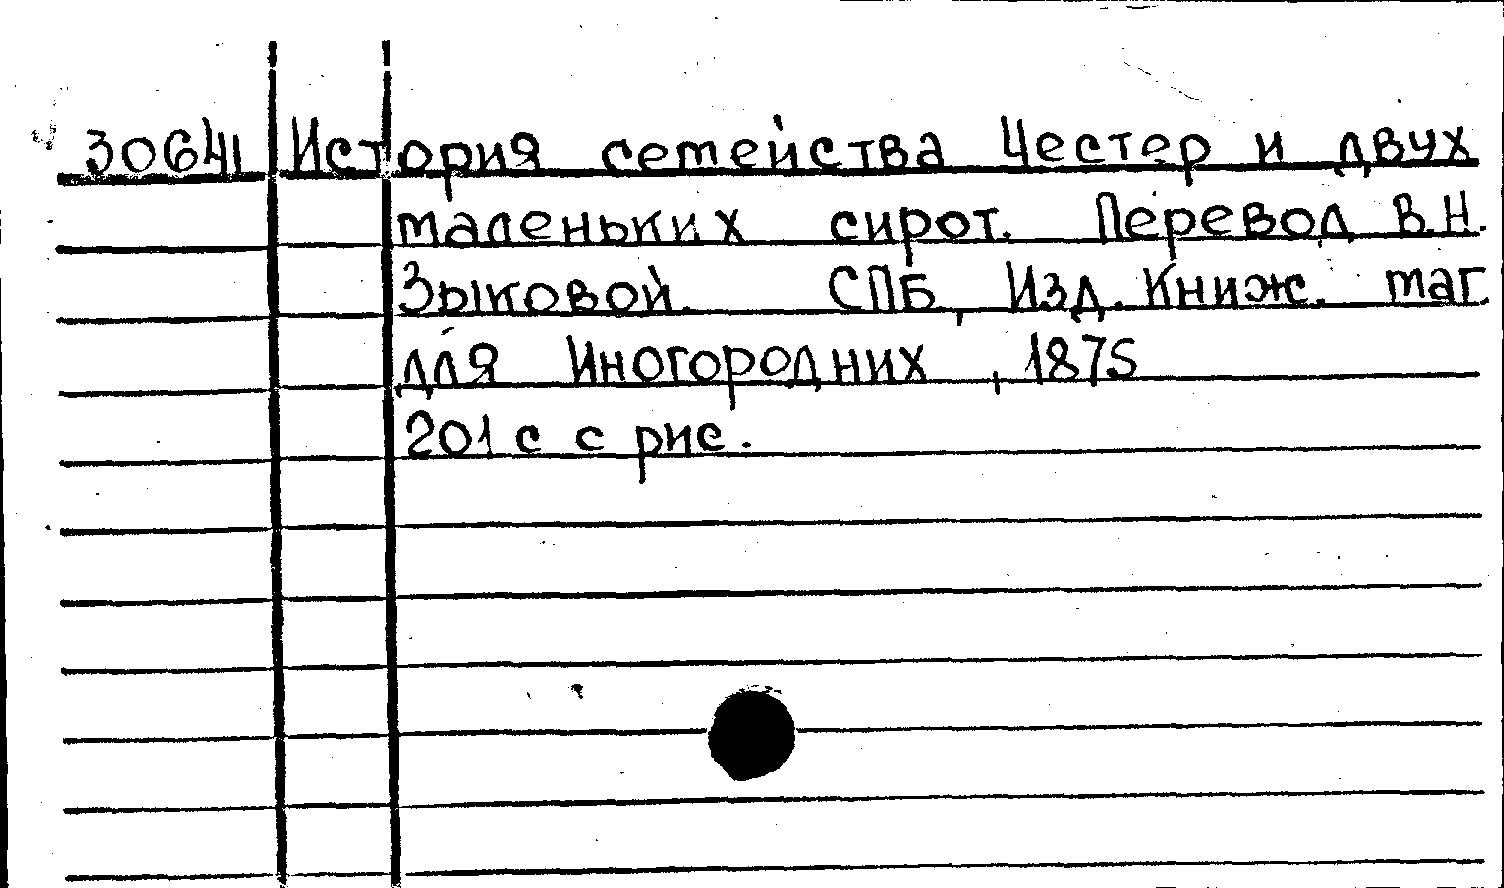 30641 История семейства Честер и двух
маленьких сирот. Перевод В.Н.
Зыковой. СПБ, Изд. Книж. маг
для Иногородних, 1875
201 с с рис.